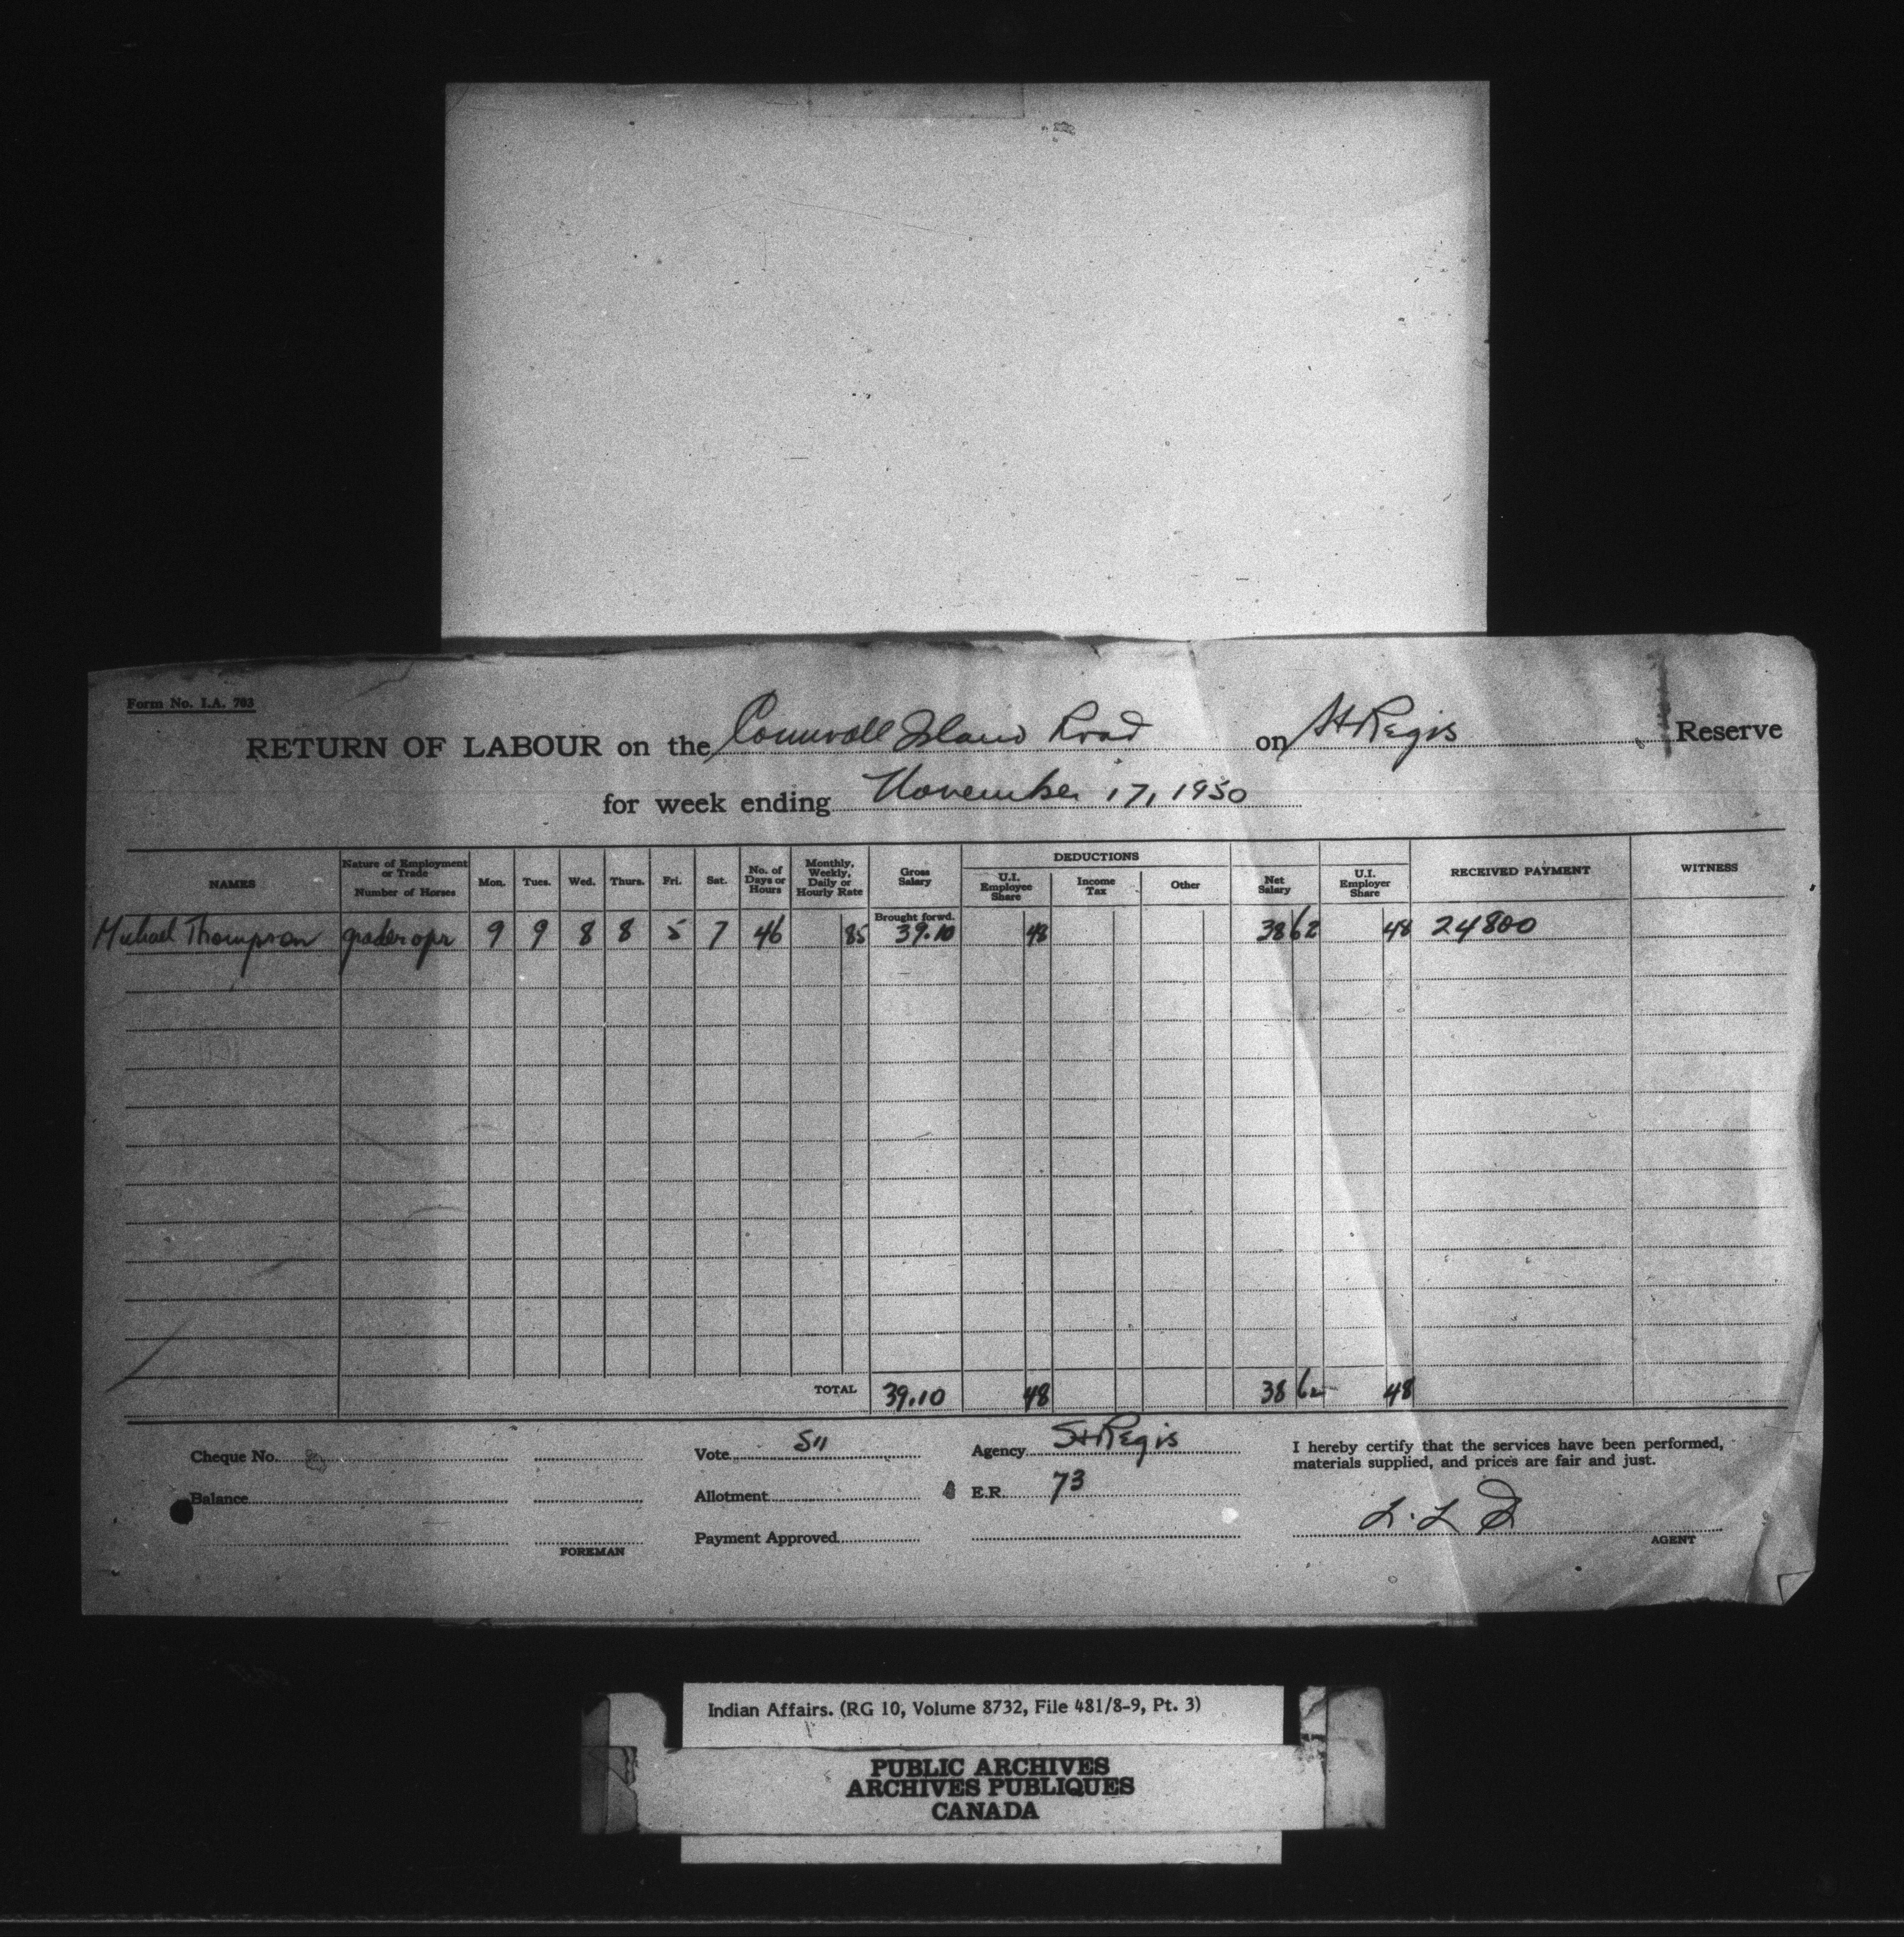 Form No. I.A. 703
RETURN OF LABOUR on the Cornwall Island Road on St Regis Reserve
for week ending November 17, 1950
NAMES Nature of Employment or Trade Number of Horses Mon. Tues. Wed. Thurs. Fri. Sat. No. of Days or Hours Monthly, Weekly, Daily or Hourly Rate Gross Salary DEDUCTIONS U.I. Employee Share Income Tax Other Net Salary U.I. Employer Share RECEIVED PAYMENT WITNESS
Brought forwd.
Michael Thompson grader opr 9 9 8 8 5 7 46 85 39.10 48 38 62 48 24800
TOTAL 39.10 48 38 62 48
Cheque No. Vote 511 Agency St Regis I hereby certify that the services have been performed,
materials supplied, and prices are fair and just.
Balance Allotment E.R. 73
Payment Approved
FOREMAN AGENT
Indian Affairs. (RG 10, Volume 8732, File 481/8-9, Pt. 3)
PUBLIC ARCHIVES
ARCHIVES PUBLIQUES
CANADA